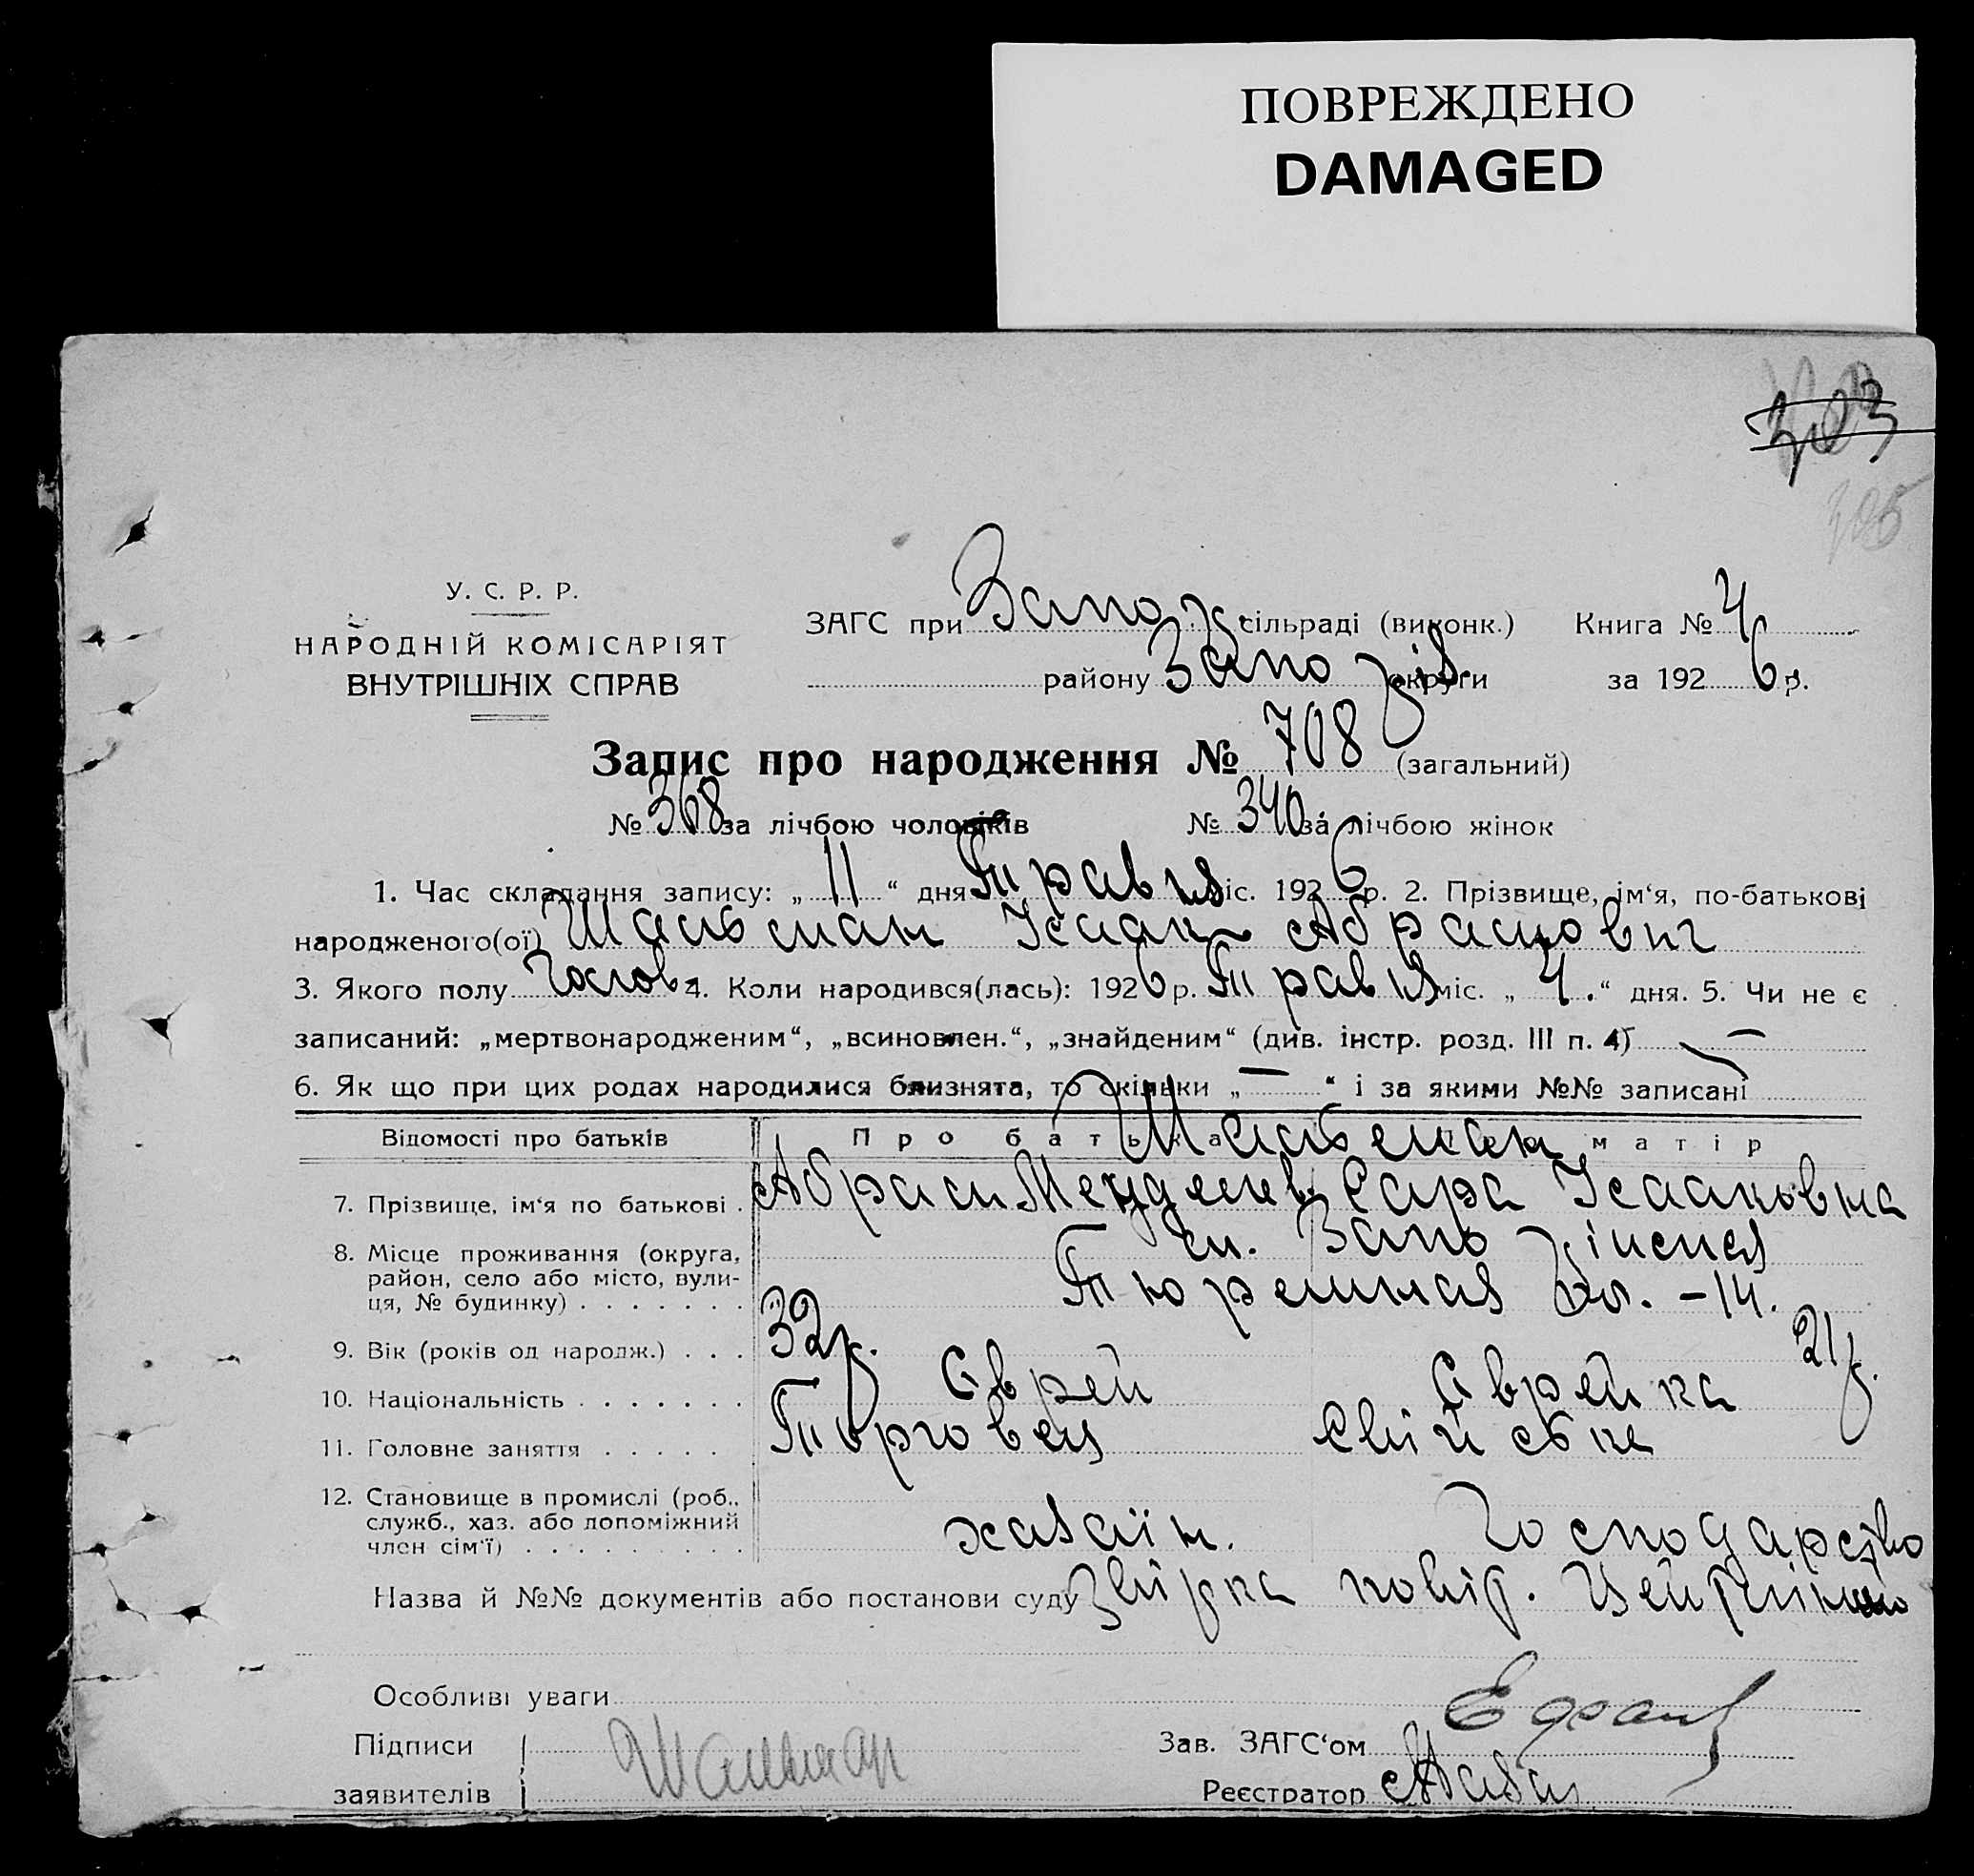 ПОВРЕЖДЕНО
DAMAGED
303
305
У. С. Р. Р.
НАРОДНІЙ КОМІСАРІЯТ
ВНУТРІШНІХ СПРАВ
ЗАГС при Запо сільраді (виконк.) Книга № 4
району Запо округи за 1926 р.
Запис про народження № 708 (загальний)
№ 368 за лічбою чоловіків № 340 за лічбою жінок
1. Час складання запису: „ 11 “ дня Травня міс. 1926 р. 2. Прізвище, ім‘я, по-батькові
народженого(ої) Шальман Ісаак Абрамович
3. Якого полу Чолов. 4. Коли народився(лась): 1926 р. Травня міс. „ 4. “ дня. 5. Чи не є
записаний: „мертвонародженим“, „всиновлен.“, „знайденим“ (див. інстр. розд. III п. 4) —
6. Як що при цих родах народилися близнята, то скільки „ — “ і за якими №№ записані
Відомості про батьків Про батька матір
Шальман
7. Прізвище, ім‘я по батькові . Абрам Менделев. Сара Ісааковна
8. Місце проживання (округа, м.
район, село або місто, вули-
ця, № будинку) . . . . . . . Тюремная — 14.
9. Вік (років од народж.) . . . 32 р. 21 р.
10. Національність . . . . . . . Єврей Єврейка
11. Головне заняття . . . . . Торговец Свійська
12. Становище в промислі (роб.,
служб., хаз. або допоміжний
член сім‘ї) . . . . . . . . . хазаїн. Господарство
Назва й №№ документів або постанови суду Звірка повід.
Особливі уваги
Підписи Шальман Зав. ЗАГС‘ом
заявителів Реєстратор